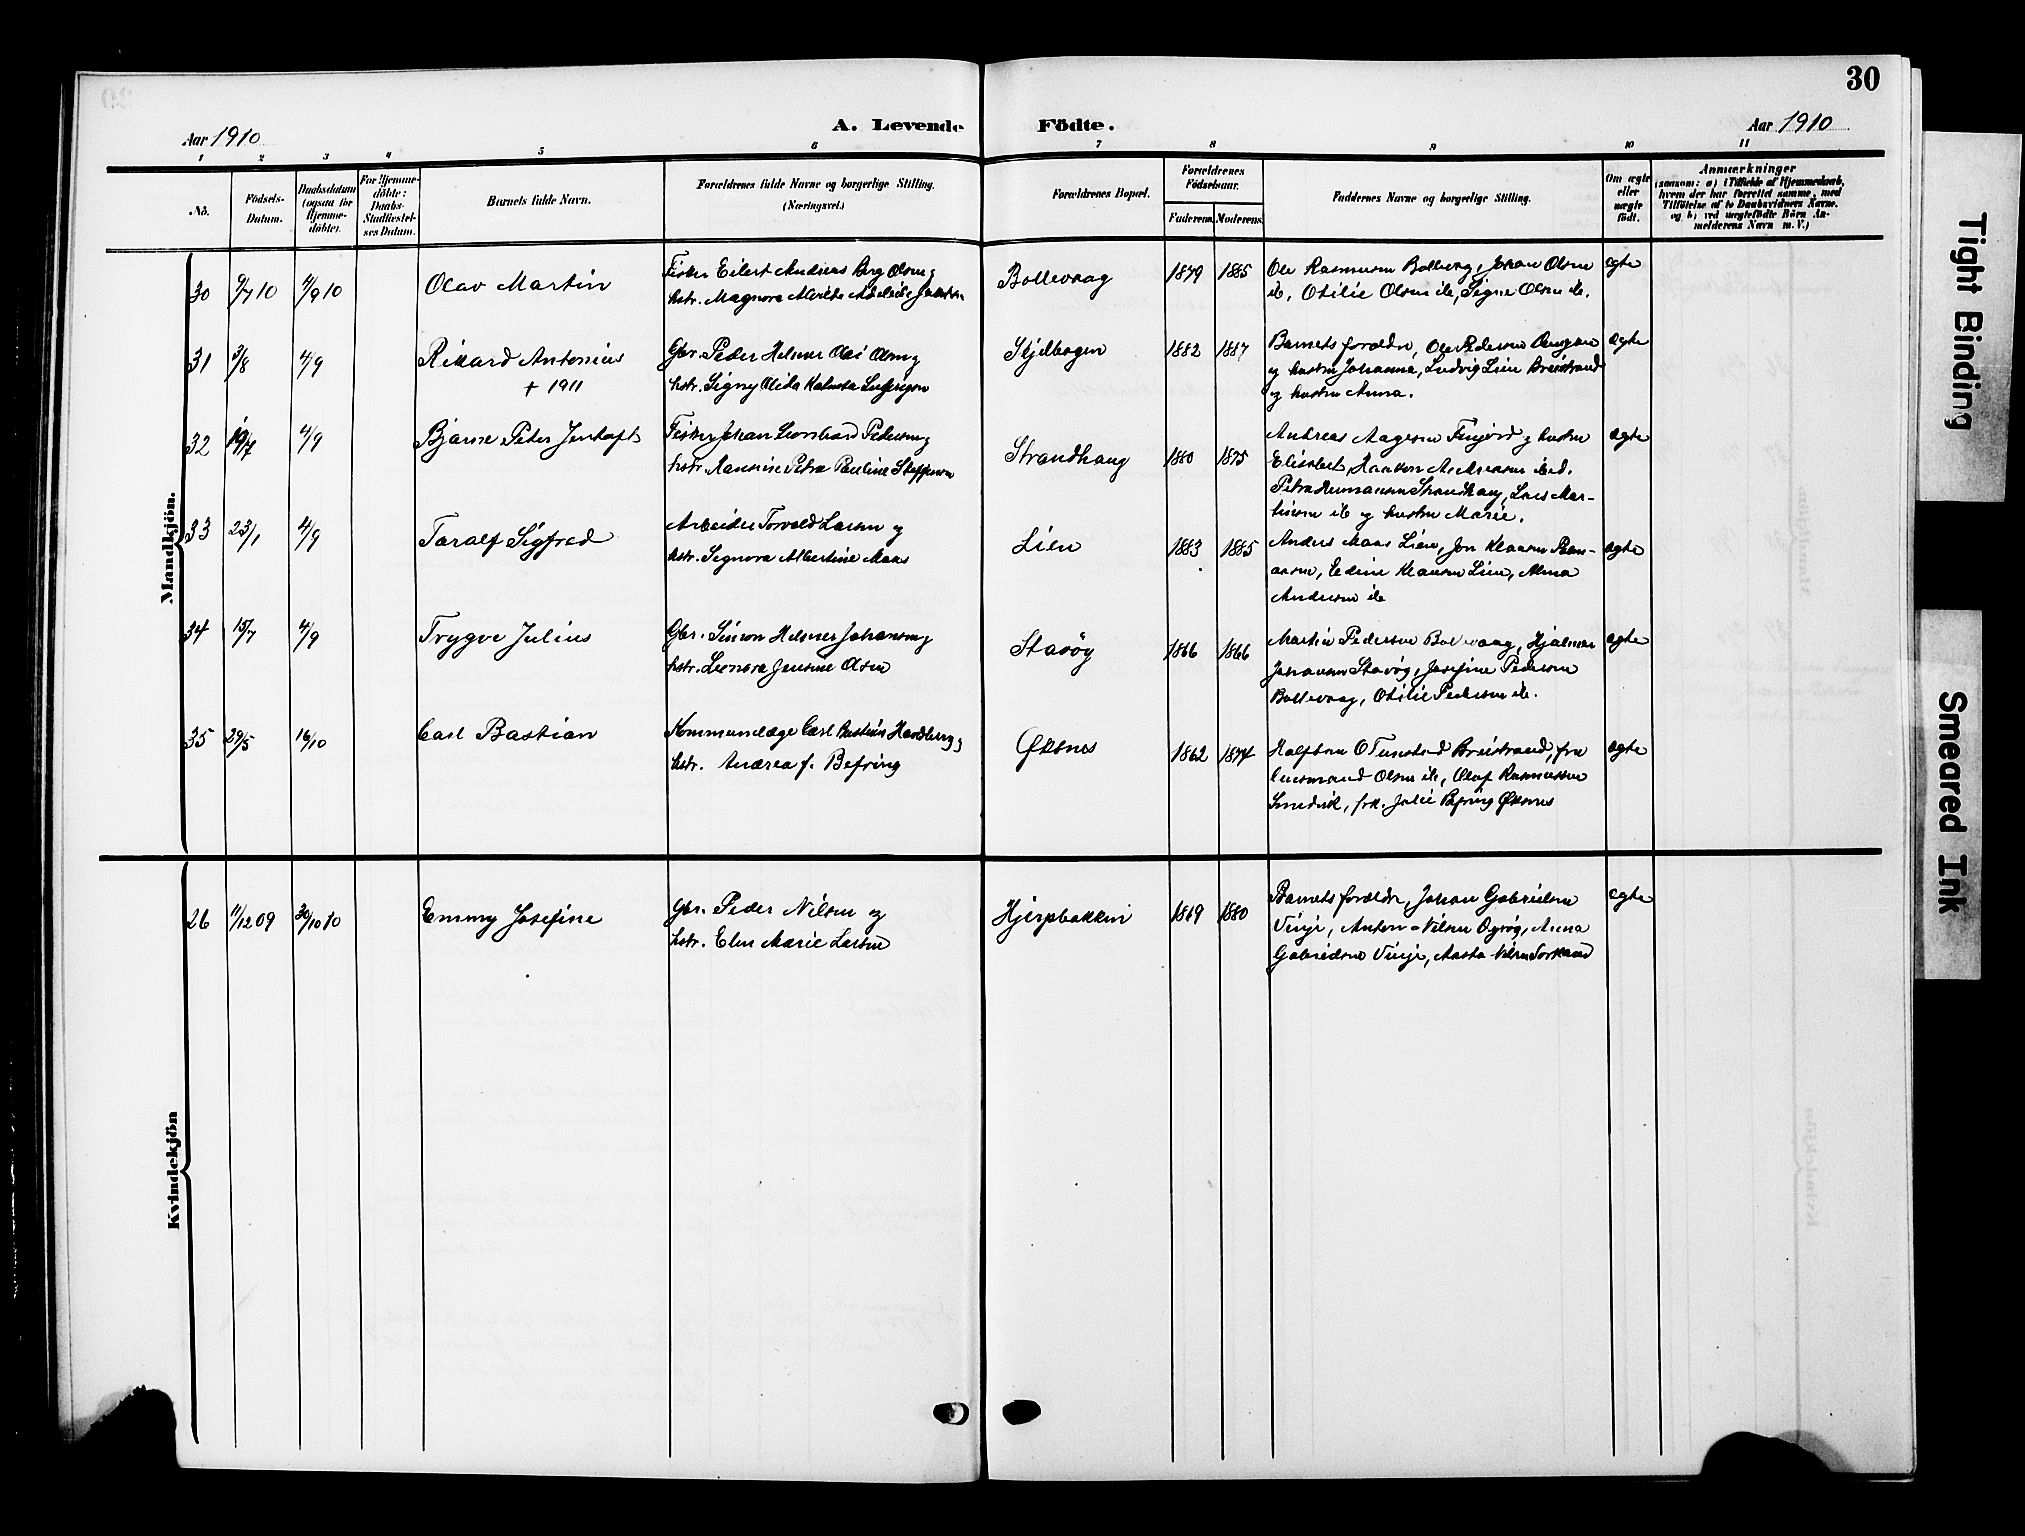 30
Aar 1910
A. Levende Födte.
Aar 1910
1 2 3 4 5 6 7 8 9 10 11
No.
Födsels-
Datum.
Daabsdatum
(ogsaa for
Hjemme-
döbte).
For Hjemme-
döbte:
Daabs-
Stadfæstel-
ses Datum.
Barnets fulde Navn.
Forældrenes fulde Navne og borgerlige Stilling.
(Næringsvei.)
Forældrenes Bopæl.
Forældrenes
Födselsaar.
Faderens. Moderens.
Faddernes Navne og borgerlige Stilling.
Om ægte
eller
uægte
födt.
Anmærkninger
(saasom: a) i Tilfælde af Hjemmedaab,
hvem der har forrettet samme, med
Tilföielse af to Daabsvidners Navne,
og b) ved uægtefödte Börn An-
melderens Navn m. V.)
Mandkjön.
30 9/7 10 4/9 10 Olav Martin
Fisker Eilert Andreas Berg Olsen og
hstr. Magnora Alvilde Adeleide
Bollevaag 1879 1885
Ole Rasmusen Bollevaag, Johan Olsen
ib., Otilie Olsen ib., Signe Olsen ib.
ægte
31 3/8 4/9 Rikard Antonius
+ 1911
Gbr. Peder Helmer Olai Olsen og
hstr. Signy Olida
Skjelbogen 1882 1887
Barnets forældre, Ole Pedersen
og hustru Johanna, Ludvig Lien Breistrand
og hustru Anna.
ægte
32 19/7 4/9 Bjarne Peter Jentoft
Fisker Johan Leonhard Pedersen og
hstr. Hansine Petra Pauline Steffensen
Strandhaug 1880 1875
Andreas Aagesen Finjord og hustru
Elisabet, Haakon Andreasen ibd.
Petra Hermansen Strandhaug, Lars Mar-
tinsen ib og hustru Marie.
ægte
33 23/1 4/9 Taralf Sigfred
Arbeider Torvald Larsen og
hstr. Signora Albertine Maas
Lien 1883 1885
Anders Maas Lien, Jon Klausen
Edine Klausen Lien, Alma
Andersen ib
ægte
34 15/7 4/9 Trygve Julius
Gbr. Simon Helmer Johansen og
hstr. Leonora Jensine Olsen
Stavöy 1866 1866
Martin Pedersen Bollevaag, Hjalmar
Johansen Stavøy, Josefine Pedersen
Bollevaag, Otilie Pedersen ib.
ægte
35 29/5 16/10 Carl Bastian
Kommunelæge Carl Bastian Hardberg og
hstr. Andrea f. Befring
Øksnes 1862 1874
Halfdan O Tunstad Breistrand, fru
Olsen ib, Olaf Rasmussen
Smedvik, frk. Julie Befring Øksnes
ægte
Kvindekjön
26 11/12 09 30/10 10 Emmy Josefine
Gbr. Peder Nilsen og
hstr. Elen Marie Larsen
Hjerpbakken 1869 1880
Barnets forældre, Johan Gabrielsen
Vinje, Anton Nilsen Ogsøy, Anna
Gabrielsen Vinje, Aasta Nilsen Sorsand
ægte
Tight Binding
Smeared Ink